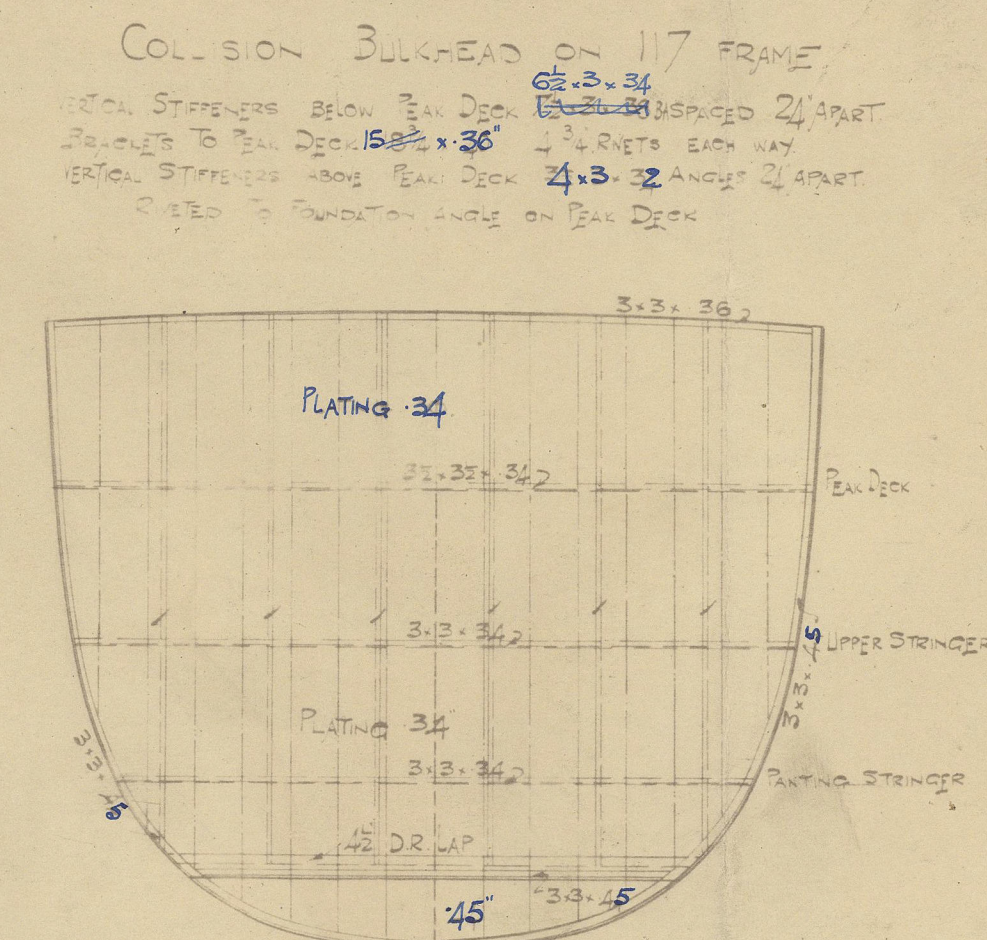 COLLISION BULKHEAD ON 117 FRAME
6½ × 3 × 34
VERTICAL STIFFENERS BELOW PEAK DECK BA SPACED 24" APART.
BRACKETS TO PEAK DECK 15 × ·36" 4 ¾ RIVETS EACH WAY.
VERTICAL STIFFENERS ABOVE PEAK DECK 4 × 3 · 32 ANGLES 24" APART.
RIVETED TO FOUNDATION ANGLE ON PEAK DECK
3 × 3 × ·36
PLATING ·34
3½ × 3½ × ·34
PEAK DECK
3 × 3 × ·34
UPPER STRINGER
3 × 3 × ·45
PLATING ·34"
3 × 3 × ·34
PANTING STRINGER
3 × 3 × ·45
4½ D.R. LAP
3 × 3 × ·45
·45"